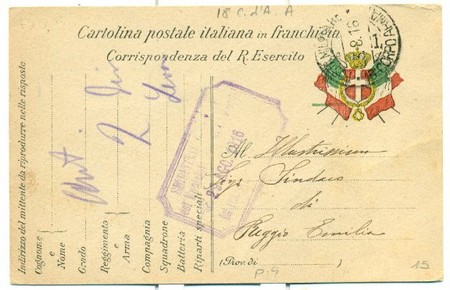 18 C. d'A. A
Cartolina postale italiana in franchigia
Corrispondenza del R. Esercito
8.16
Indirizzo del mittente da riprodurre nelle risposte
Cognome e Nome
Grado
Reggimento e Arma
Compagnia
Squadrone
Batteria
Riparti speciali
AGOSTO 16
All Illustrissimo
Sig. Sindaco
di
Reggio Emilia
(Prov. di
P. 4
15